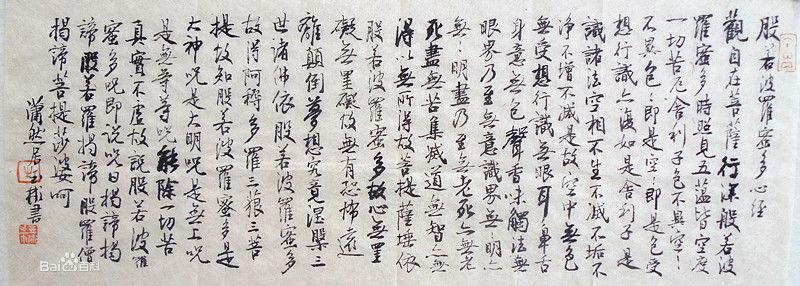 般若波羅蜜多心経
觀自在菩薩行深般若波
羅蜜多時照見五蘊皆空度
一切苦厄舍利子色不異空々
不異色色即是空空即是色受
想行識亦復如是舍利子是
識諸法空相不生不滅不垢不
净不增不滅是故空中無色
無受想行識無眼耳鼻舌
身意無色聲香味觸法無
眼界乃至無意識界無無明亦
無無明盡乃至無老死亦無老
死盡無苦集滅道無智亦無
得以無所得故菩提薩埵依
般若波羅蜜多故心無罣
礙無罣礙故無有恐怖遠
離顛倒夢想究竟涅槃三
世諸佛依般若波羅蜜多
故得阿耨多羅三藐三菩
提故知般若波羅蜜多是
大神咒是大明咒是無上咒
是無等等咒能除一切苦
真實不虛故說般若波羅
蜜多咒即說咒曰揭諦揭
諦般若羅揭諦般羅僧
揭諦菩提莎婆呵
然居士書
Baidu百科